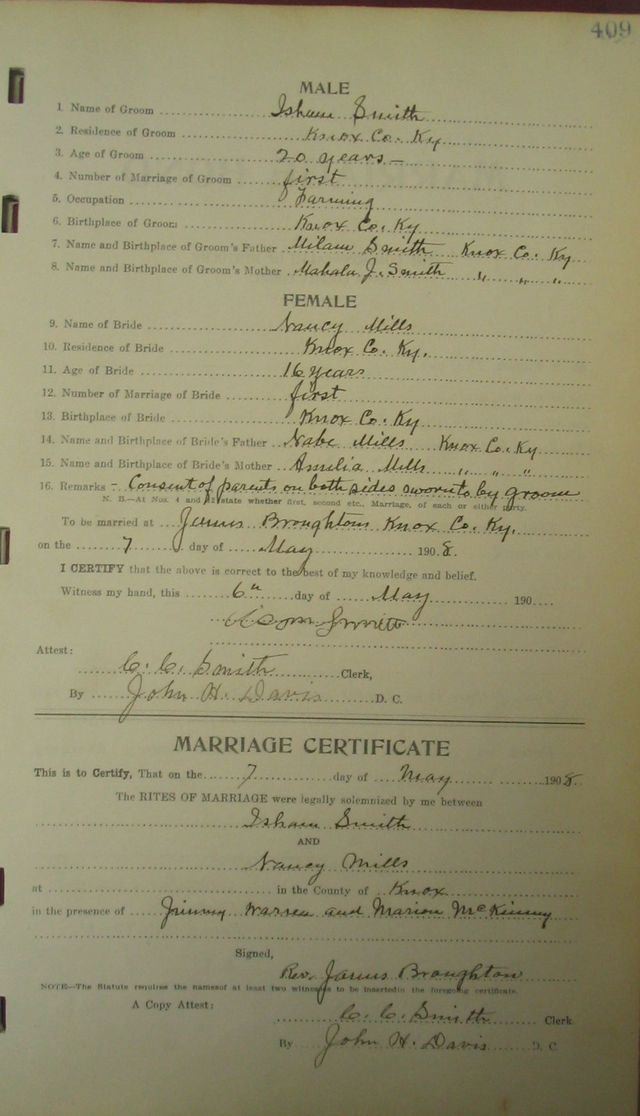 409
MALE
1. Name of Groom Isham Smith
2. Residence of Groom Knox Co. Ky
3. Age of Groom 20 years –
4. Number of Marriage of Groom first
5. Occupation Farming
6. Birthplace of Groom Knox Co. Ky
7. Name and Birthplace of Groom's Father Milam Smith Knox Co. Ky
8. Name and Birthplace of Groom's Mother Mahala J. Smith " " "
FEMALE
9. Name of Bride Nancy Mills
10. Residence of Bride Knox Co. Ky.
11. Age of Bride 16 years
12. Number of Marriage of Bride first
13. Birthplace of Bride Knox Co. Ky
14. Name and Birthplace of Bride's Father Nabe Mills Knox Co. Ky
15. Name and Birthplace of Bride's Mother Amelia Mills " " "
16. Remarks – Consent of parents on both sides sworn to by groom
N. B.—At Nos. 4 and 12 state whether first, second etc., Marriage, of each or either party.
To be married at James Broughtons Knox Co. Ky.
on the 7 day of May 1908.
I CERTIFY that the above is correct to the best of my knowledge and belief.
Witness my hand, this 6" day of May 190
Smith
Attest:
C. C. Smith Clerk,
By John H. Davis D. C.
MARRIAGE CERTIFICATE
This is to Certify, That on the 7 day of May 1908.
The RITES OF MARRIAGE were legally solemnized by me between
Isham Smith
AND
Nancy Mills
at in the County of Knox
in the presence of Jimmy Warren and Marion McKinney
Signed,
Rev. James Broughton
NOTE—The Statute requires the names of at least two witnesses to be inserted in the foregoing certificate.
A Copy Attest:
C. C. Smith Clerk
By John H. Davis D. C.